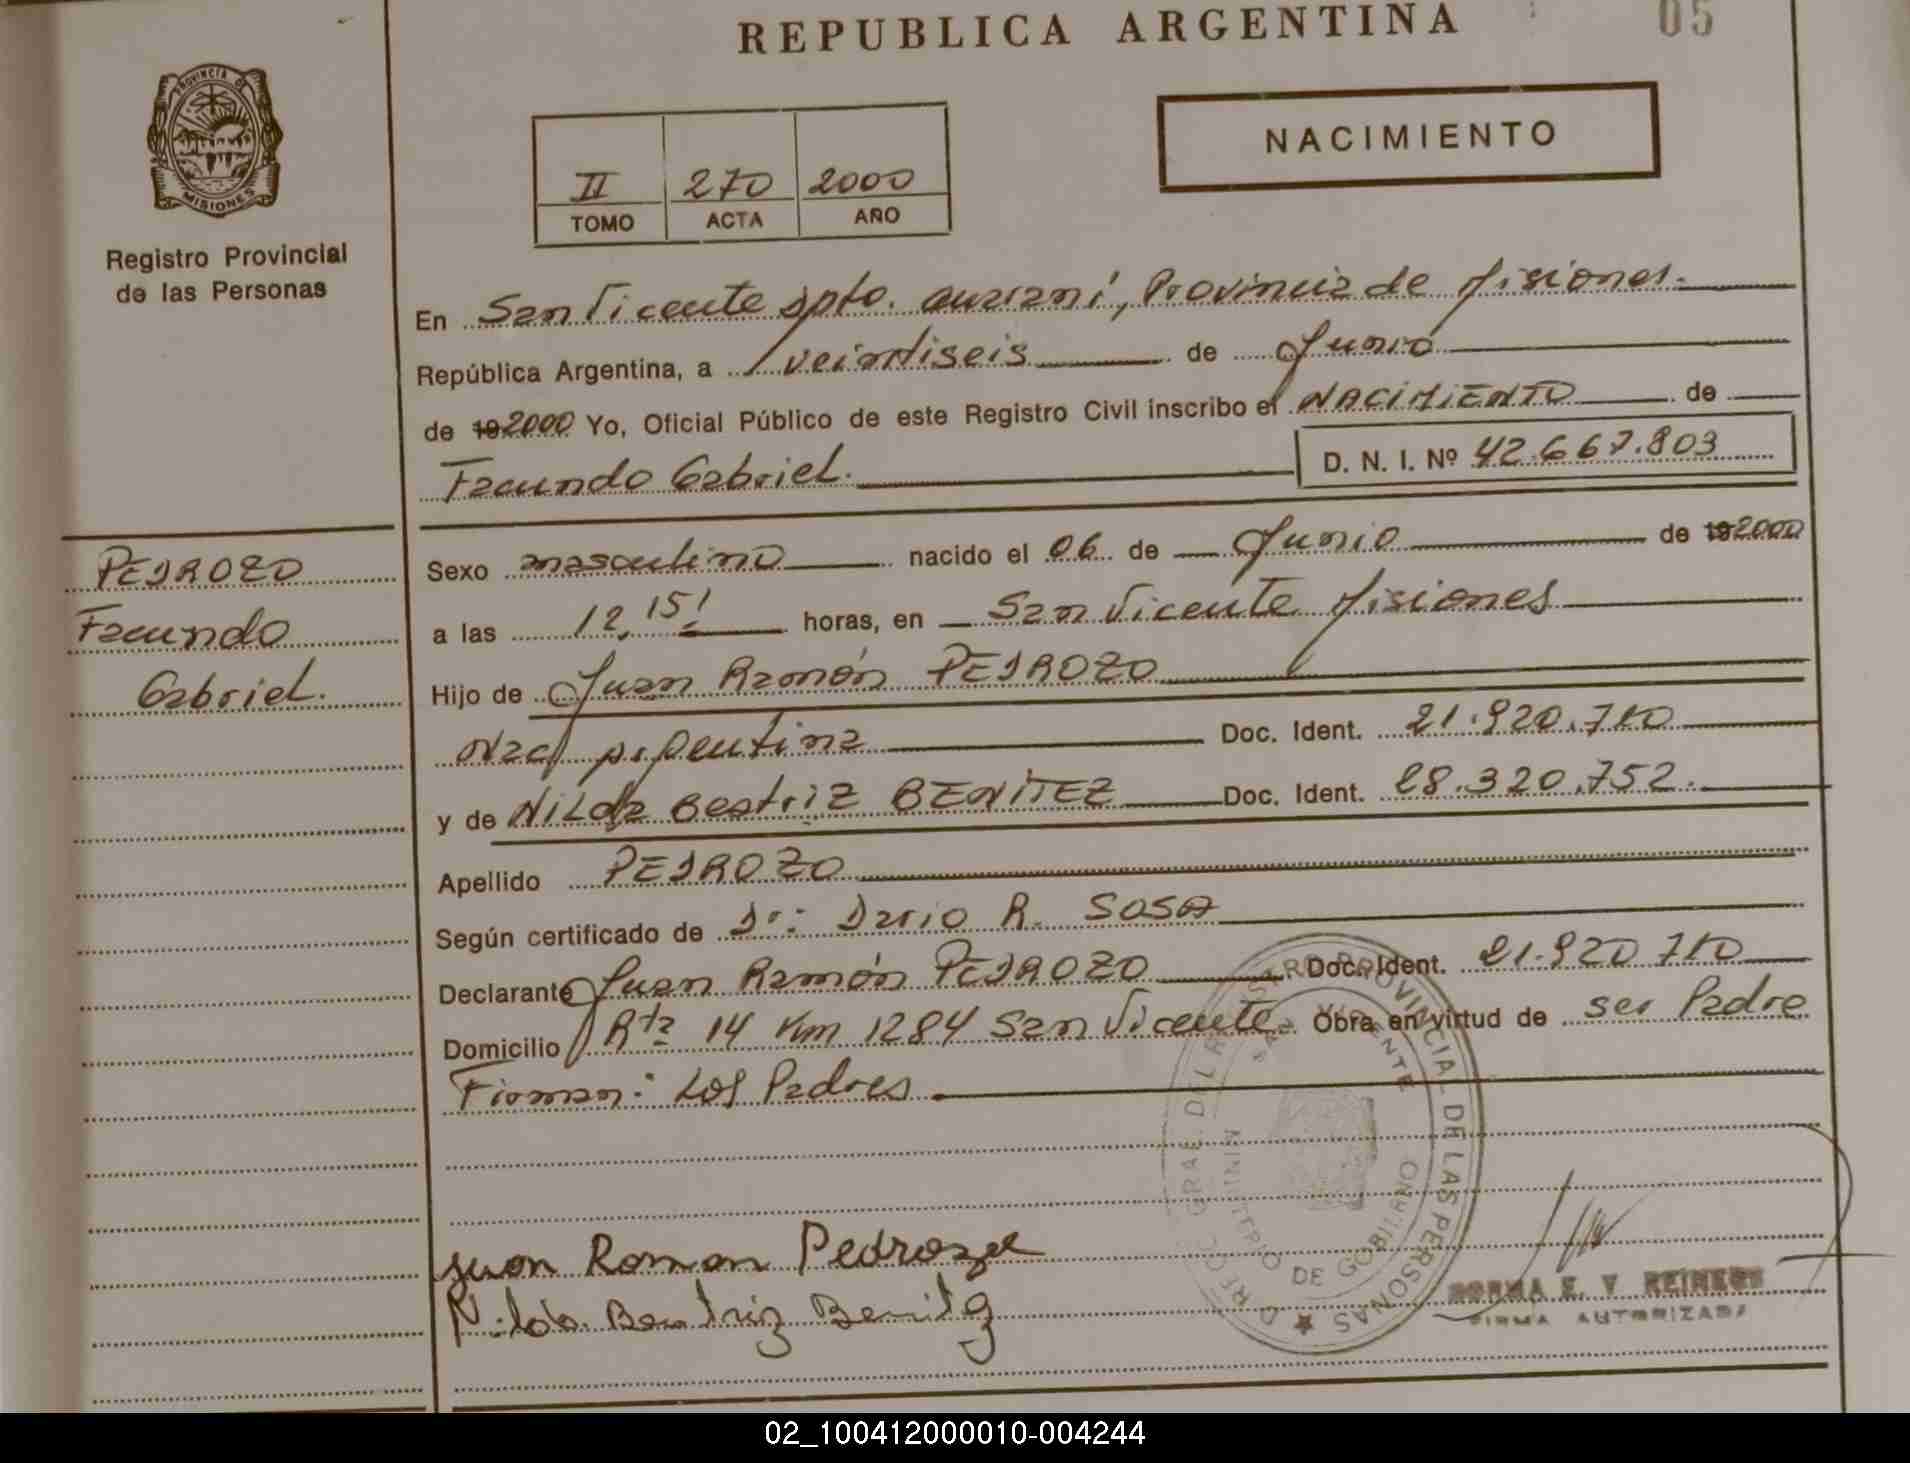 REPUBLICA ARGENTINA
05
PROVINCIA DE
MISIONES
Registro Provincial
de las Personas
NACIMIENTO
II 270 2000
TOMO ACTA AÑO
En San Vicente Dpto. Guaraní, Provincia de Misiones.
República Argentina, a veintiseis de Junio
de 192000 Yo, Oficial Público de este Registro Civil inscribo el NACIMIENTO de
Facundo Gabriel.
D. N. I. Nº 42.667.803
PEDROZO
Facundo
Gabriel.
Sexo masculino nacido el 06 de Junio de 192000
a las 12,15' horas, en San Vicente Misiones
Hijo de Juan Ramón PEDROZO
Nac. Argentina Doc. Ident. 21.920.710
y de Nilda Beatriz BENITEZ Doc. Ident. 28.320.752.
Apellido PEDROZO
Según certificado de Dr: Dario R. SOSA
Declarante Juan Ramón PEDROZO Doc. Ident. 21.920.710
Domicilio Rta 14 Km 1284 San Vicente Obra en virtud de ser Padre
Firman: Los Padres
DIREC. GRAL. DEL REGISTRO PROVINCIAL DE LAS PERSONAS
SAN VICENTE
MINISTERIO DE GOBIERNO
Juan Ramon Pedrozo
Nilda Beatriz Benitez
NORMA E. V.
FIRMA AUTORIZADA
02_100412000010-004244